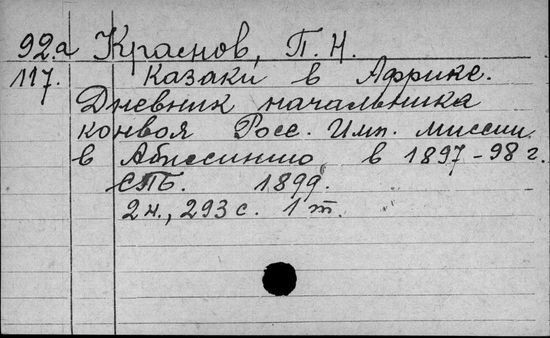 92.а Краснов, П. Н.
117. Казаки в Африке.
Дневник начальника
конвоя Росс. Имп. миссии
в Абиссинию в 1897-98 г.
СПБ. 1899.
2 н., 293 с. 1 т.